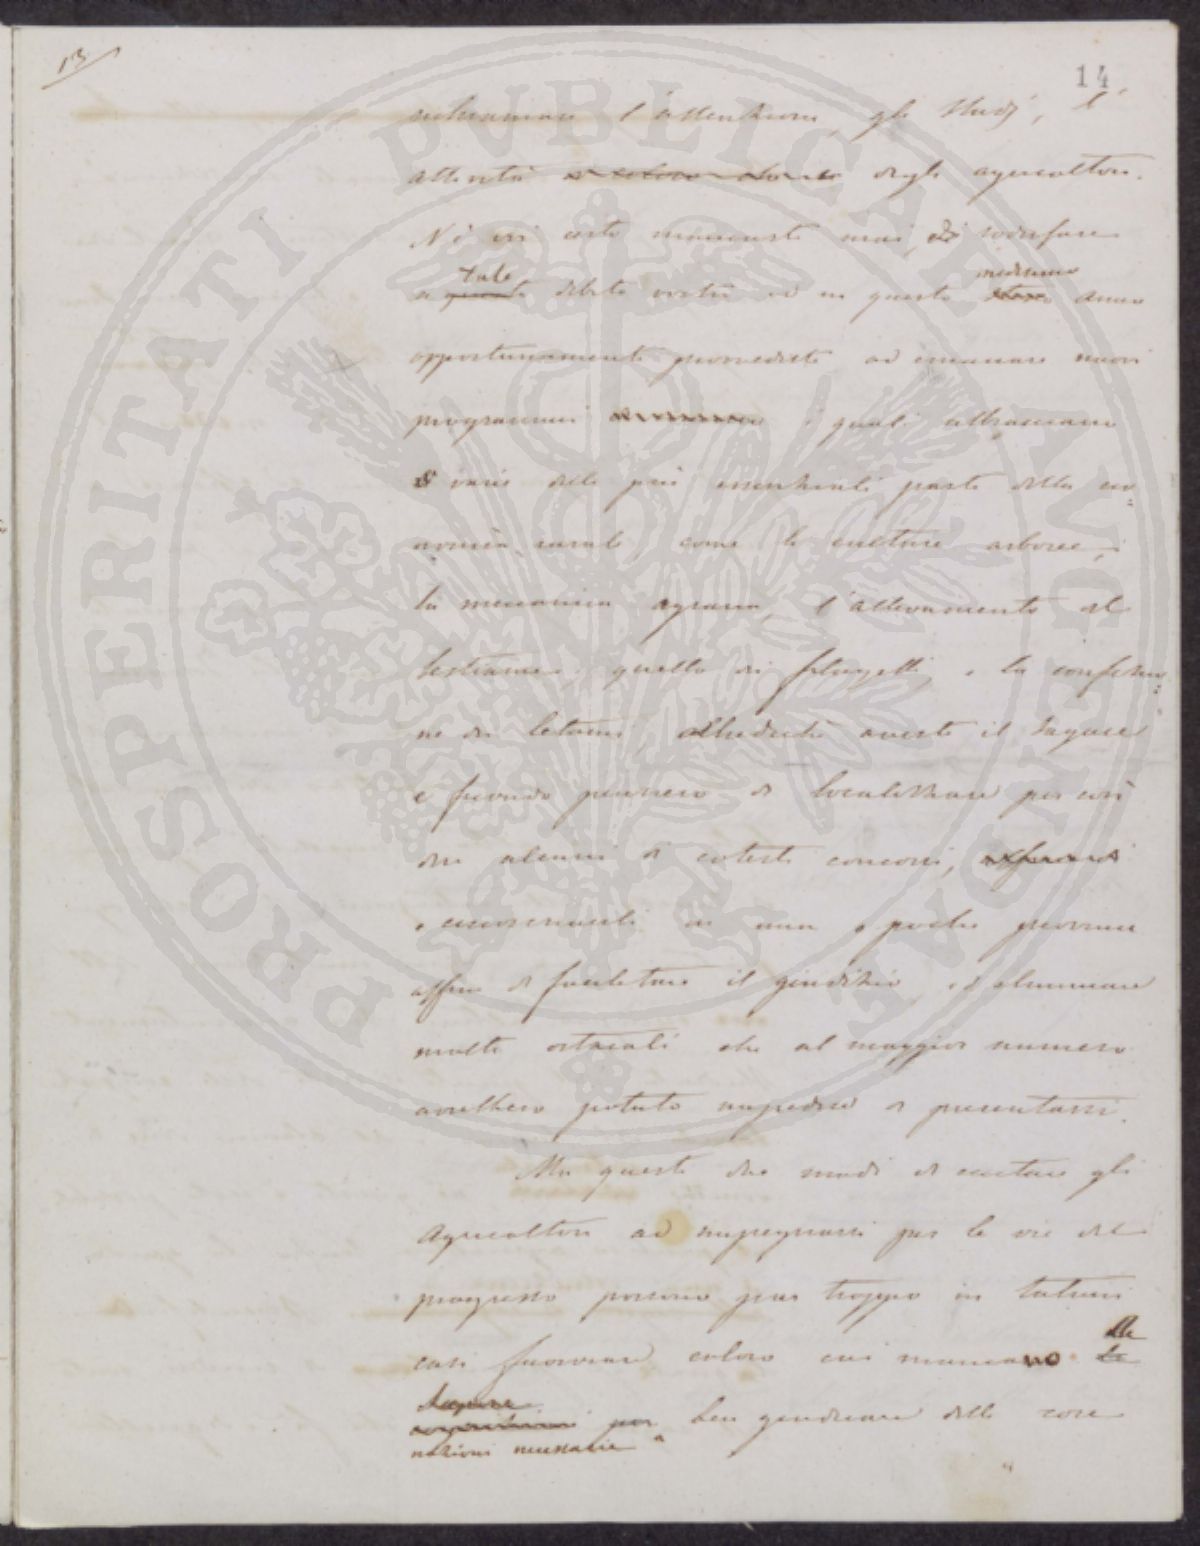 13
14
richiamare l'attenzione, gli studj, l'
attività degli agricoltori.
Nè voi certo mancaste mai di sodisfare
tale medesimo
a questo debito vostro ed in questo stesso anno
opportunamente provvedeste ad emanare nuovi
programmi i quali abbracciano
varie delle più essenziali parti della eco=
nomia rurale, come le culture arboree,
la meccanica agraria, l'allevamento del
bestiame, quello dei filugelli, e la confezio=
ne dei letami, allorchè aveste il sagace
e fecondo pensiero di localizzare per così
dire alcuni di cotesti concorsi,
e circoscriverli in una o poche provincie
affine di facilitare il giudizio, ed eliminare
molti ostacoli che al maggior numero
avrebbero potuto impedire di presentarsi.
Ma questi due modi di eccitare gli
Agricoltori ad impegnarsi per le vie del
progresso possono pur troppo in taluni
casi fuorviare coloro cui mancano le
per ben giudicare delle cose
nozioni necessarie a
PROSPERITATI PVBLICAE AVGENDAE